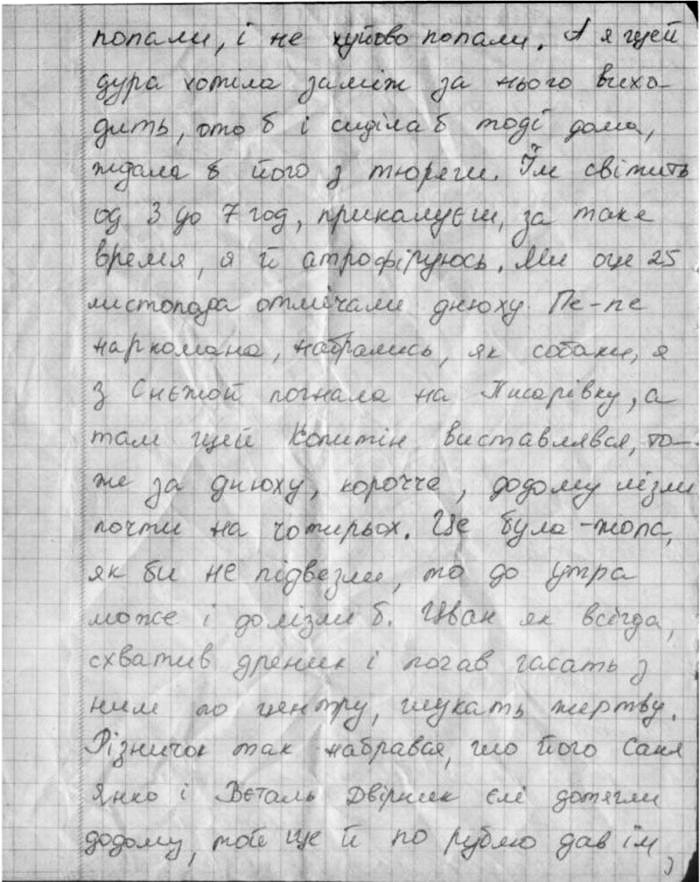 попали, і не хуйово попали. А я щей
дура хотіла заміж за нього вихо-
дить, ото б і сиділа б тоді дома,
ждала б його з тюряги. Їм світить
од 3 до 7 год, прикалуєш, за таке
время, я й атрофіруюсь. Ми оце 25
листопада отмічали днюху. Пе-пе
наркомана, набрались, як собаки, я
з Снєжой погнала на Писарівку, а
там щей Копитін виставлявся, то-
же за днюху, короччє, додому лізли
почти на чотирьох. Це була - жопа,
як би не підвезли, то до утра
може і долізли б. Иван як всігда,
схватив дрення і погав гасать з
ним по центру, шукать жертву.
Різничок так набрався, шо його Саня
Янко і Вєталь Двірник єлі дотягли
додому, той ще й по рублю дав їм